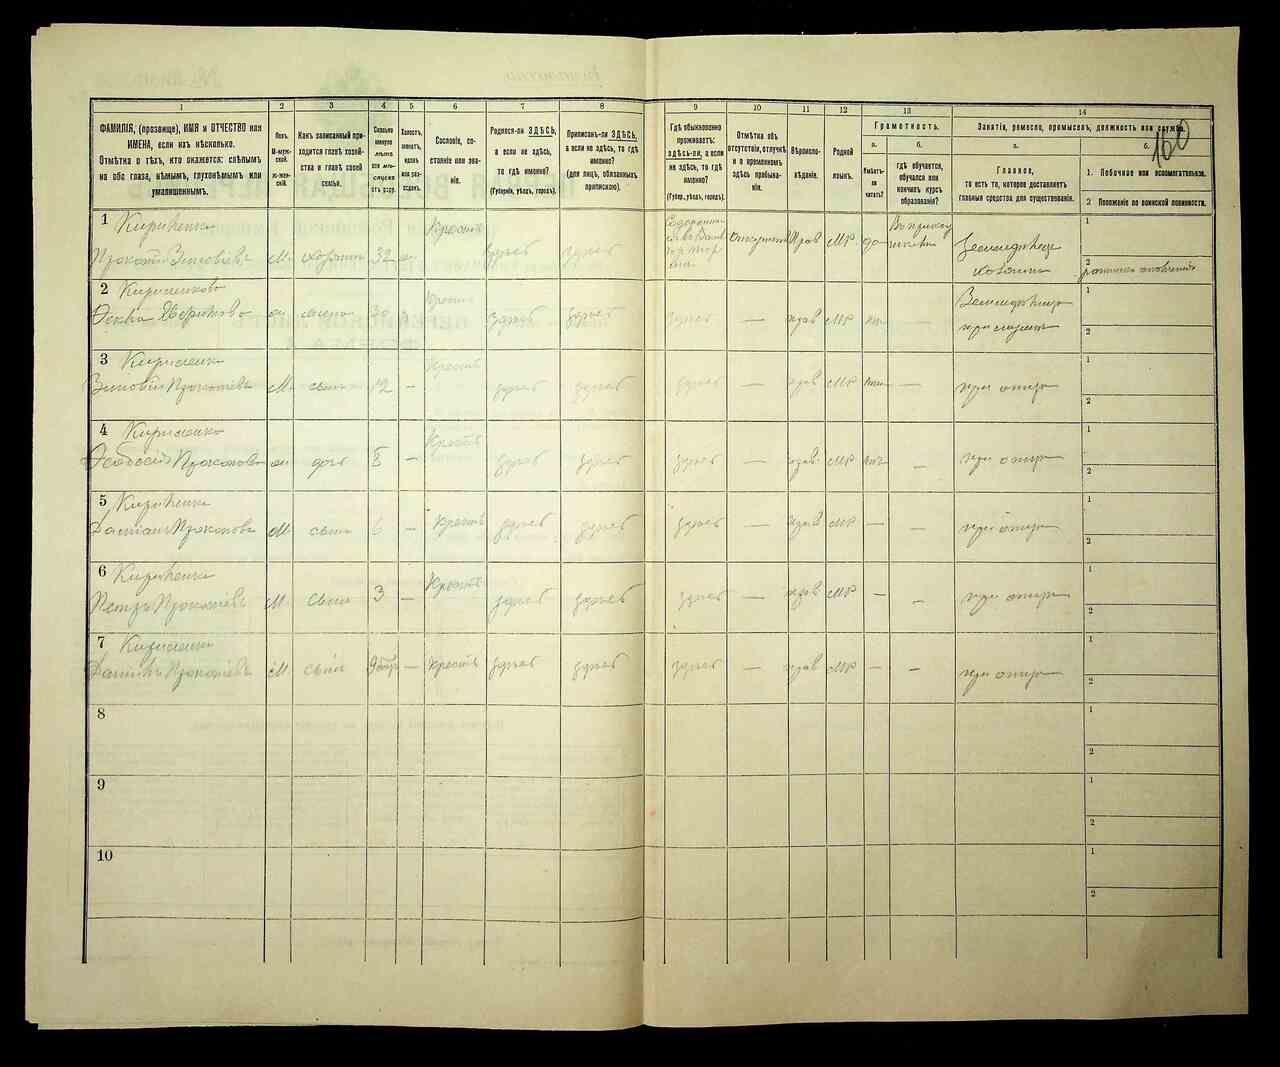 160
1 2 3 4 5 6 7 8 9 10 11 12 13 14
ФАМИЛІЯ, (прозвище), ИМЯ и ОТЧЕСТВО или
ИМЕНА, если ихъ нѣсколько.
Отмѣтка о тѣхъ, кто окажется: слѣпымъ
на оба глаза, нѣмымъ, глухонѣмымъ или
умалишеннымъ.
Полъ.
М-муж-
ской.
Ж-жен-
скій.
Какъ записанный при-
ходится главѣ хозяй-
ства и главѣ своей
семьи.
Сколько
минуло
лѣтъ
или мѣ-
сяцевъ
отъ роду.
Холостъ,
женатъ,
вдовъ
или раз-
веденъ.
Сословіе, со-
стояніе или зва-
ніе.
Родился-ли ЗДѢСЬ,
а если не здѣсь,
то гдѣ именно?
(Губернія, уѣздъ, городъ).
Приписанъ-ли ЗДѢСЬ,
а если не здѣсь, то гдѣ
именно?
(для лицъ, обязанныхъ
припискою).
Гдѣ обыкновенно
проживаетъ:
здѣсь-ли, а если
не здѣсь, то гдѣ
именно?
(Губер., уѣздъ, городъ).
Отмѣтка объ
отсутствіи, отлучкѣ
и о временномъ
здѣсь пребыва-
ніи.
Вѣроиспо-
вѣданіе.
Родной
языкъ.
Грамотность.
а.
Умѣетъ-
ли
читать?
б.
гдѣ обучается,
обучался или
кончилъ курсъ
образованія?
Занятіе, ремесло, промыселъ, должность или служба.
а.
Главное,
то есть то, которое доставляетъ
главныя средства для существованія.
б.
1. Побочное или вспомогательное.
2 Положеніе по воинской повинности.
1 Кириченко
Прокопій Зиновіевъ М. хозяинъ 32 Крест. здѣсь здѣсь Прав МР да
Земледѣлецъ
хозяинъ
1
2
2 Кириченкова
жена 30 Крест. здѣсь здѣсь здѣсь — прав МР
Земледѣлица
при мужѣ
1
2
3 Кириченко
Зиновій Прокопіевъ М. сынъ 12 — Крест. здѣсь здѣсь здѣсь — прав МР — при отцѣ
1
2
4 Кириченко
дочь 8 — Крест. здѣсь здѣсь здѣсь — прав МР — при отцѣ
1
2
5 Кириченко
М. сынъ 6 — Крест. здѣсь здѣсь здѣсь — прав МР — — при отцѣ
1
2
6 Кириченко
Петръ Прокопіевъ М. сынъ 3 — Крест. здѣсь здѣсь здѣсь — прав МР — — при отцѣ
1
2
7 Кириченко
Прокопіевъ М. сынъ — Крест. здѣсь здѣсь здѣсь — прав МР — — при отцѣ
1
2
8
1
2
9
1
2
10
1
2